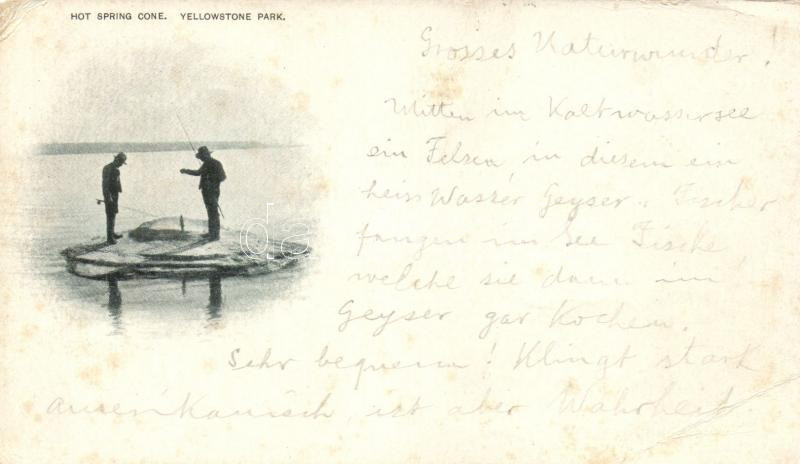 HOT SPRING CONE. YELLOWSTONE PARK.
Grosses Naturwunder!
Mitten im Kaltwassersee
ein Felsen, in diesem ein
heiss Wasser Geyser. Fischer
fangen im See Fische,
welche sie dann im
Geyser gar Kochen.
Sehr bequem! Klingt stark
amerikanisch, ist aber Wahrheit.